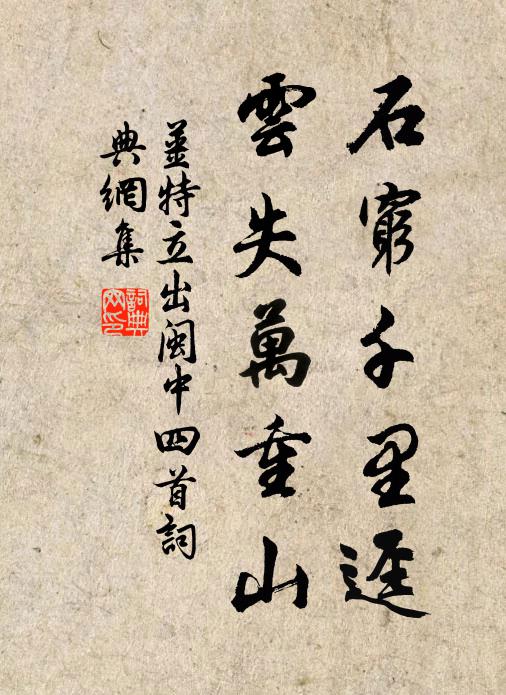 石窮千里逕
雲失萬重山
薑特立出閩中四首詞
典網集
詞典
网印